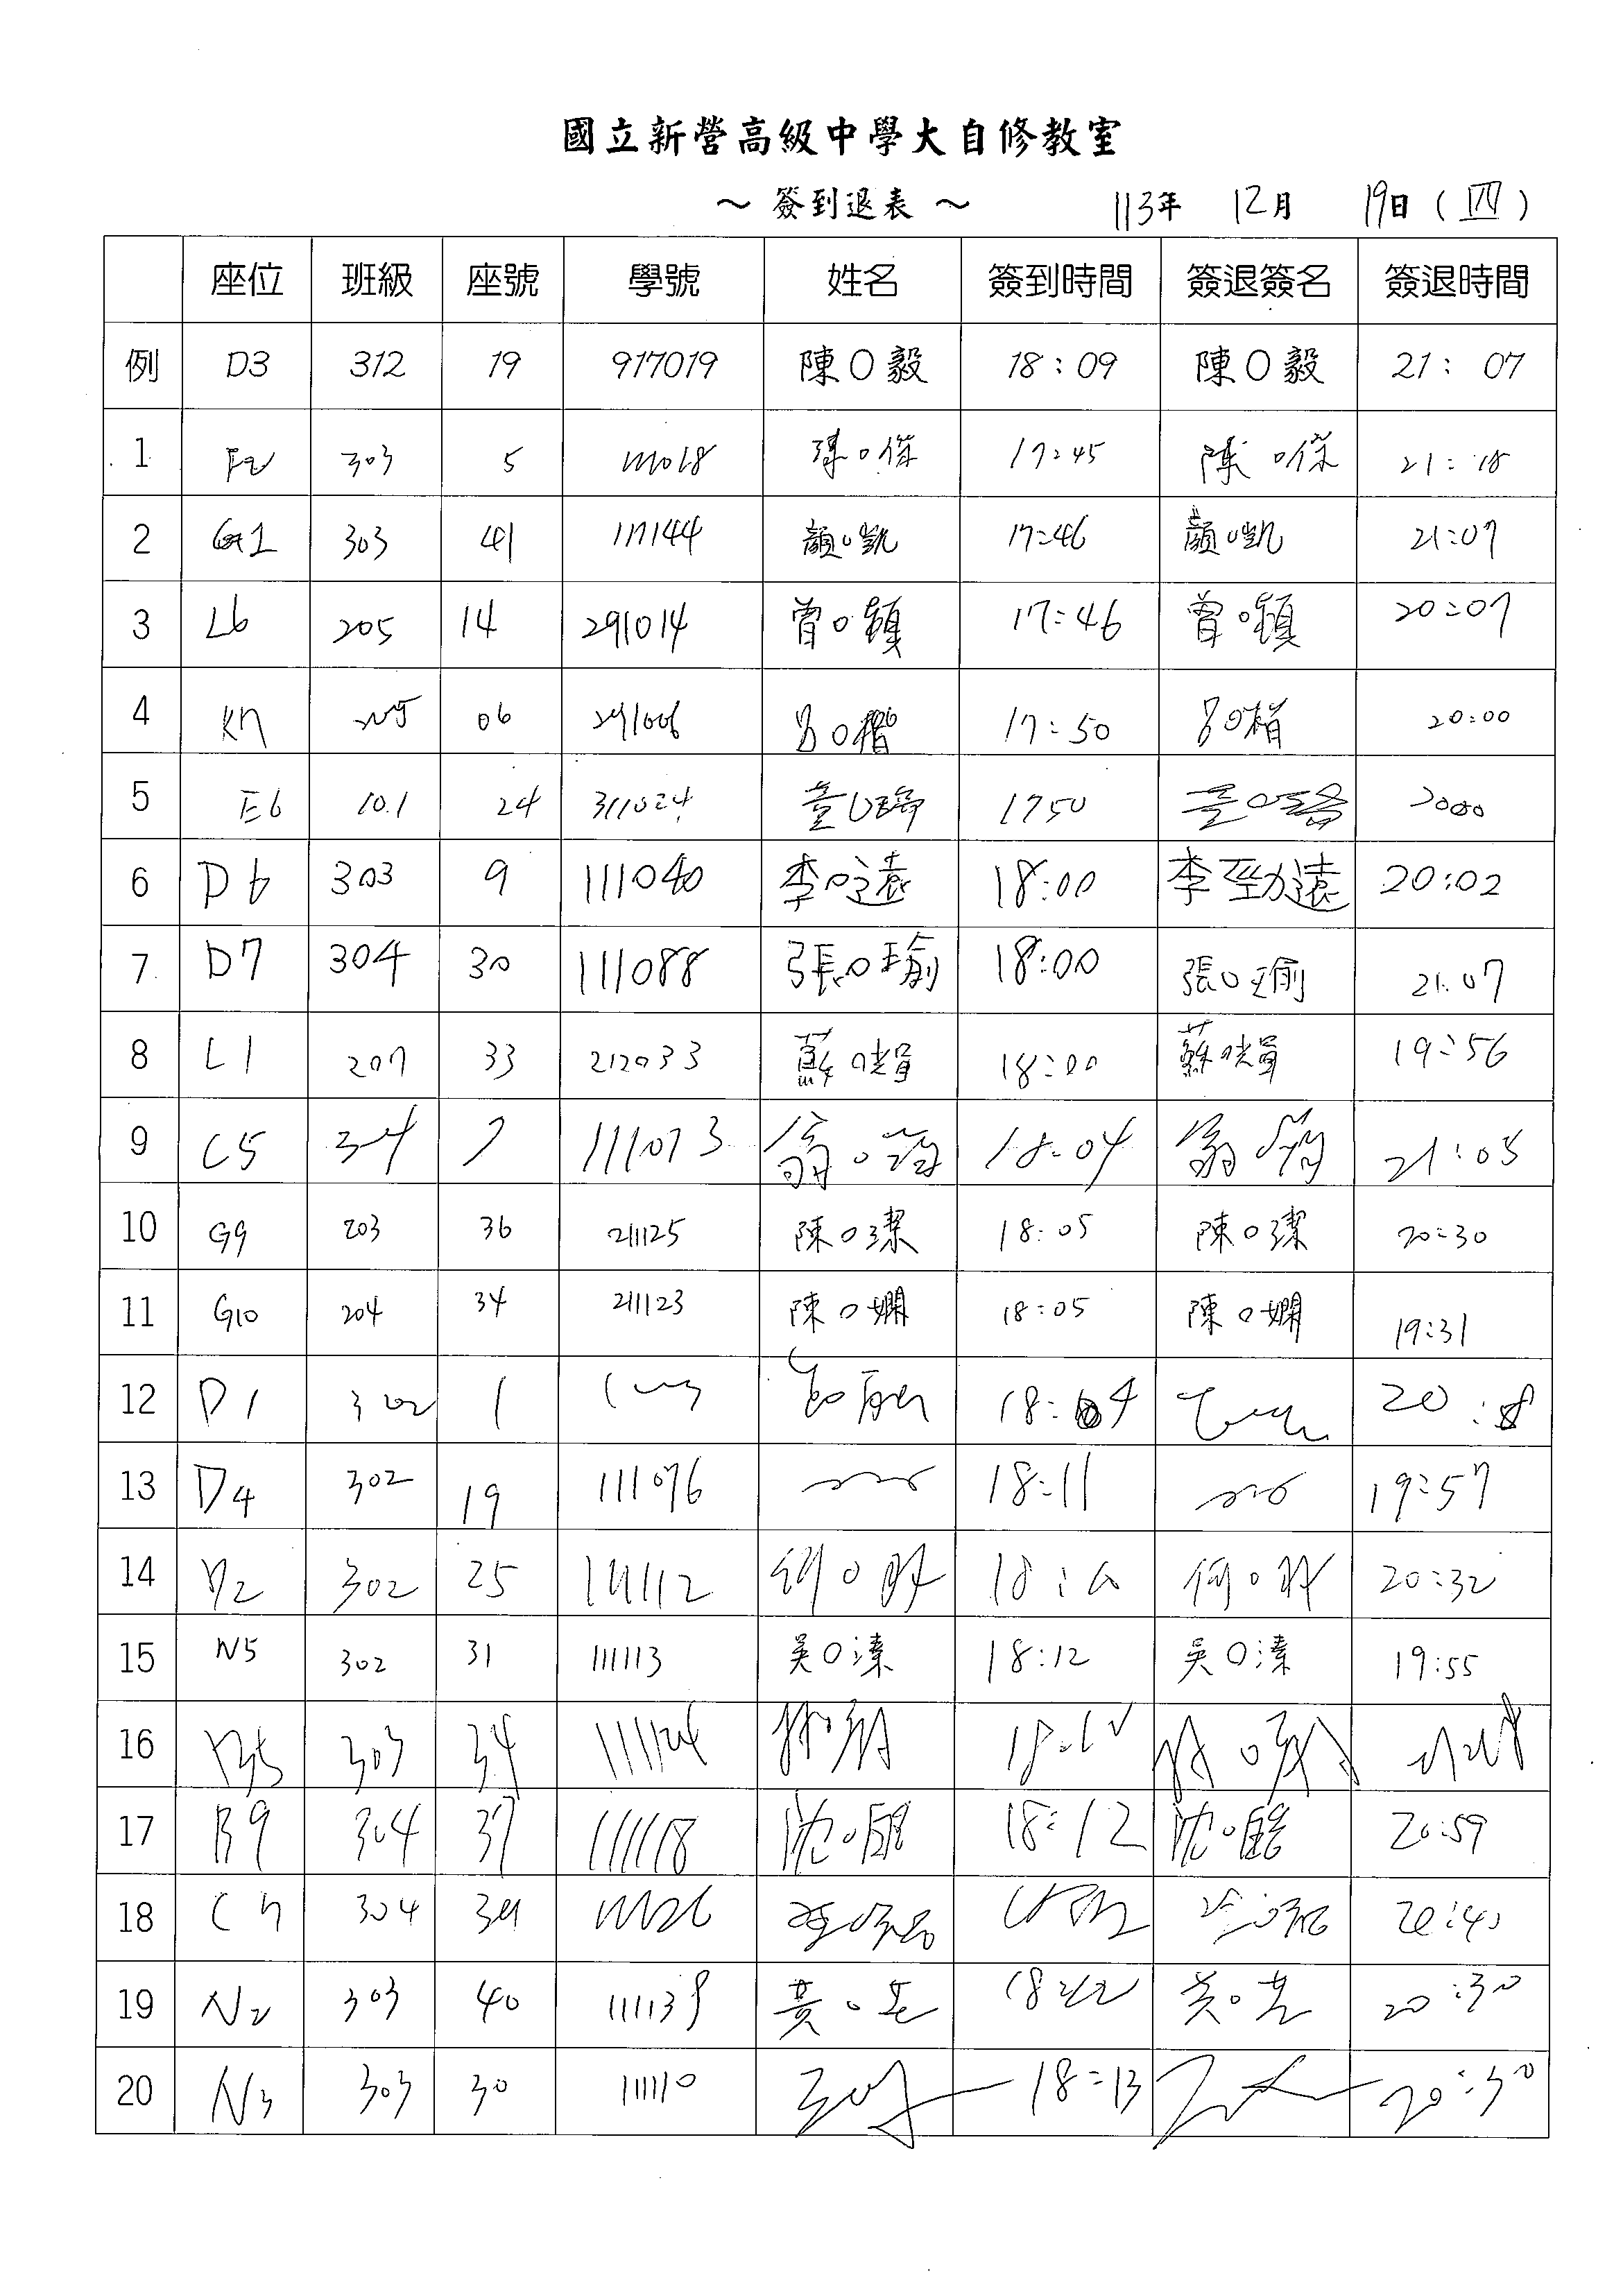 國立新營高級中學大自修教室
～ 簽到退表 ～ 113年 12月 19日 (四)
座位 班級 座號 學號 姓名 簽到時間 簽退簽名 簽退時間
例 D3 312 19 917019 陳O毅 18:09 陳O毅 21:07
1 F2 303 5 17:45 陳O傑 21:18
2 G1 303 41 111144 顏O凱 17:46 顏O凱 21:07
3 L6 205 14 291014 曾O穎 17:46 曾O穎 20:07
4 K7 205 06 291006 呂O楷 17:50 20:00
5 E6 101 24 311024 童O 1750 2000
6 D6 303 9 111040 李O遠 18:00 李勁遠 20:02
7 D7 304 30 111088 張O瑜 18:00 張O瑜 21:07
8 L1 207 33 212033 蘇O 18:00 蘇O 19:56
9 C5 304 7 111073 翁O 18:04 翁O 21:05
10 G9 203 36 211125 陳O潔 18:05 陳O潔 20:30
11 G10 204 34 211123 陳O嫻 18:05 陳O嫻 19:31
12 D1 302 1 18:04 20:
13 D4 302 19 111076 18:11 19:57
14 D2 302 25 111112 何O 何O 20:32
15 N5 302 31 111113 吳O溱 18:12 吳O溱 19:55
16 B5 303 34 111124
17 B9 304 37 111118 沈O 18:12 沈O 20:59
18 C7 304 20:40
19 N2 303 40 111139 黃O 黃O 20:30
20 N3 303 30 111110 18:13 20:30